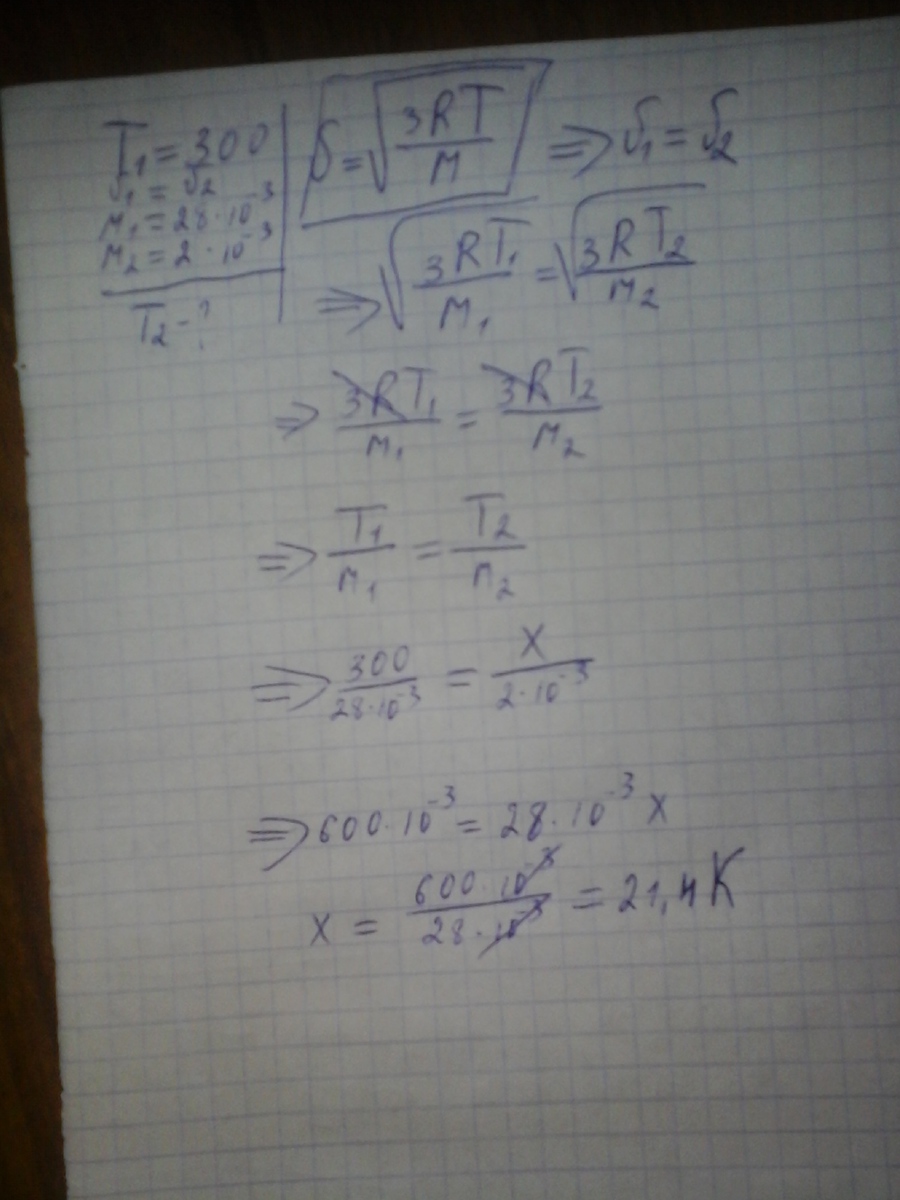 T₁ = 300
υ₁ = υ₂
M₁ = 28 · 10⁻³
M₂ = 2 · 10⁻³
T₂ - ?
υ = √(3RT/M) ⇒ υ₁ = υ₂
⇒ √(3RT₁/M₁) = √(3RT₂/M₂)
⇒ 3RT₁/M₁ = 3RT₂/M₂
⇒ T₁/M₁ = T₂/M₂
⇒ 300/28·10⁻³ = X/2·10⁻³
⇒ 600·10⁻³ = 28·10⁻³ x
x = 600·10⁻³/28·10⁻³ = 21,4K